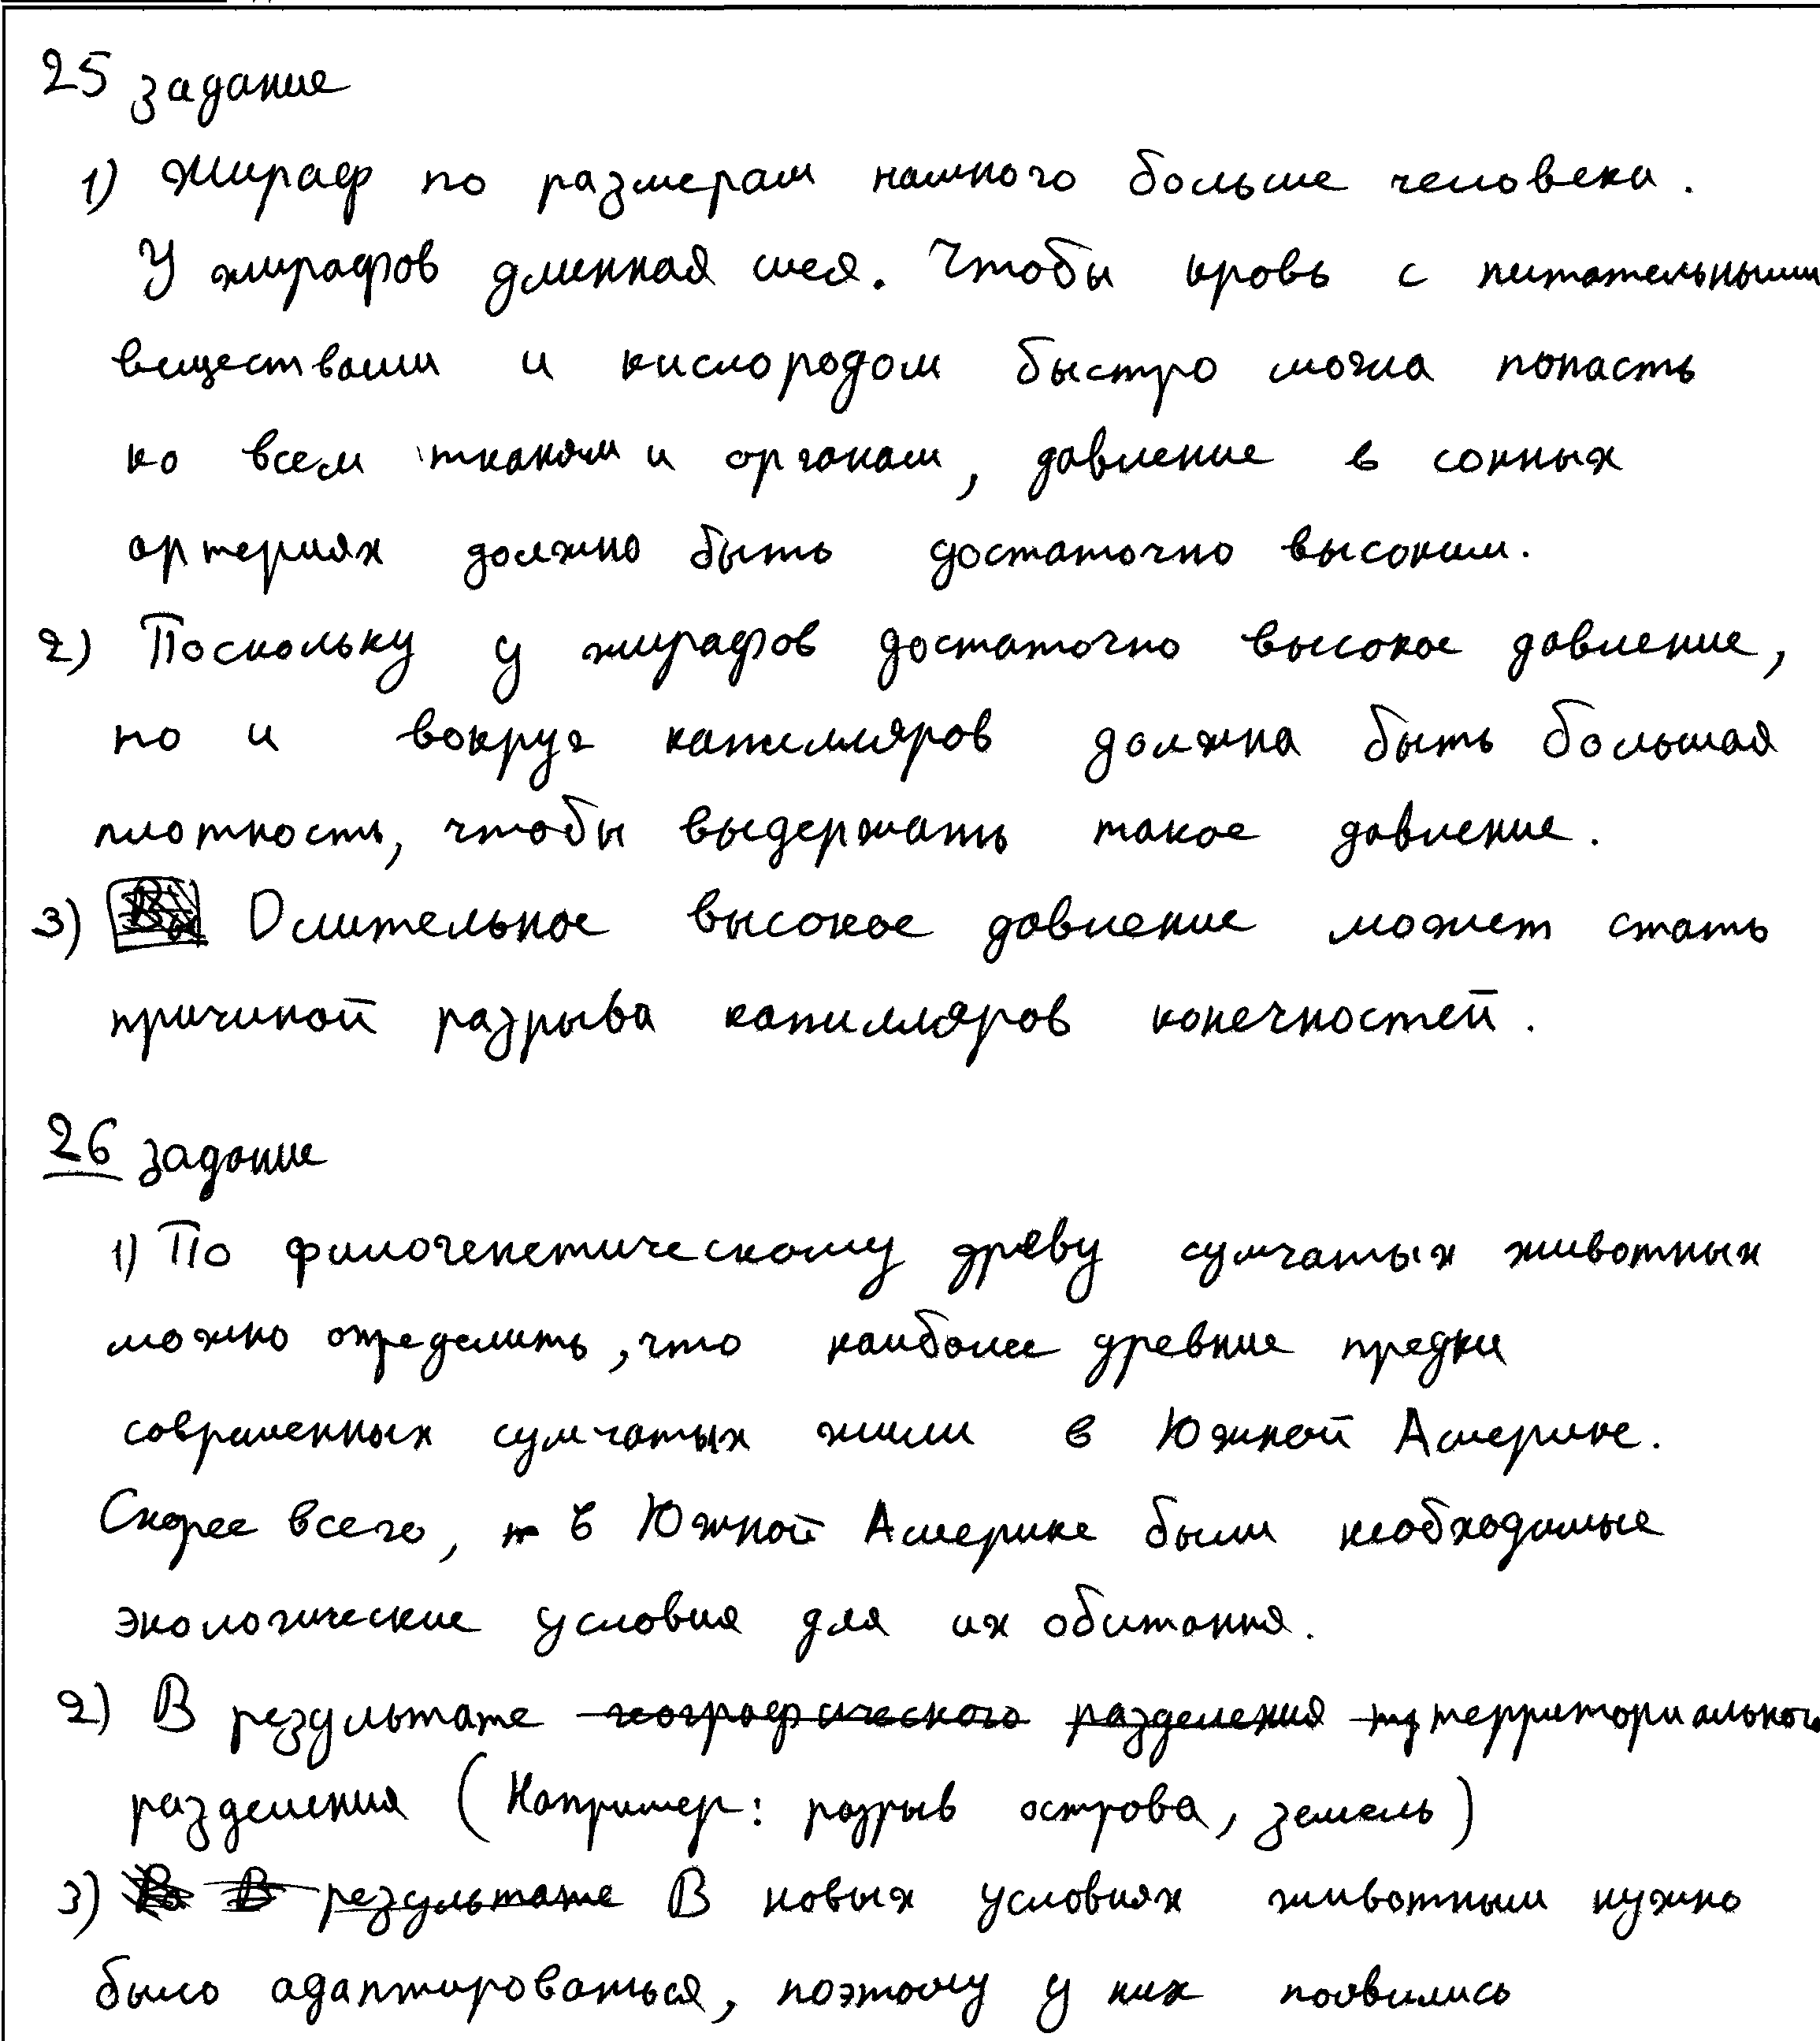 25 задание
1) Жираф по размерам намного больше человека.
У жирафов длинная шея. Чтобы кровь с питательными
веществами и кислородом быстро могла попасть
ко всем тканям и органам, давление в сонных
артериях должно быть достаточно высоким.
2) Поскольку у жирафов достаточно высокое давление,
то и вокруг капилляров должна быть большая
плотность, чтобы выдержать такое давление.
3) Длительное высокое давление может стать
причиной разрыва капилляров конечностей.
26 задание
1) По филогенетическому древу сумчатых животных
можно определить, что наиболее древние предки
современных сумчатых жили в Южной Америке.
Скорее всего, в Южной Америке были необходимые
экологические условия для их обитания.
2) В результате географического разделения территориального
разделения (Например: разрыв острова, земель)
3) В результате В новых условиях животным нужно
было адаптироваться, поэтому у них появились